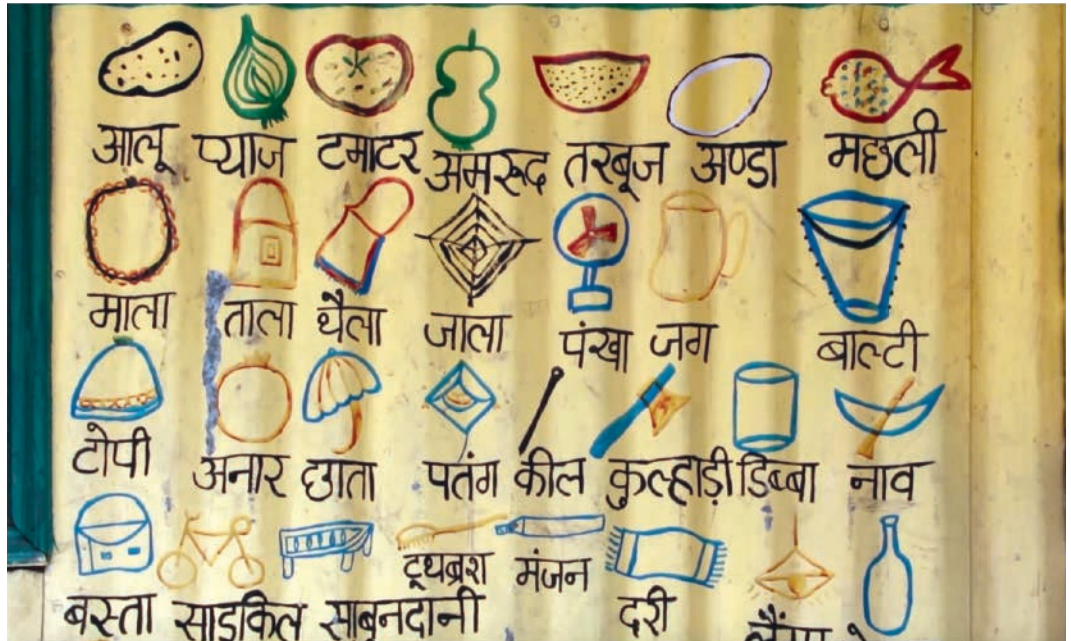 आलू प्याज टमाटर अमरूद तरबूज अण्डा मछली
माला ताला थैला जाला पंखा जग बाल्टी
टोपी अनार छाता पतंग कील कुल्हाड़ी डिब्बा नाव
बस्ता साइकिल साबुनदानी टूथब्रश मंजन दरी